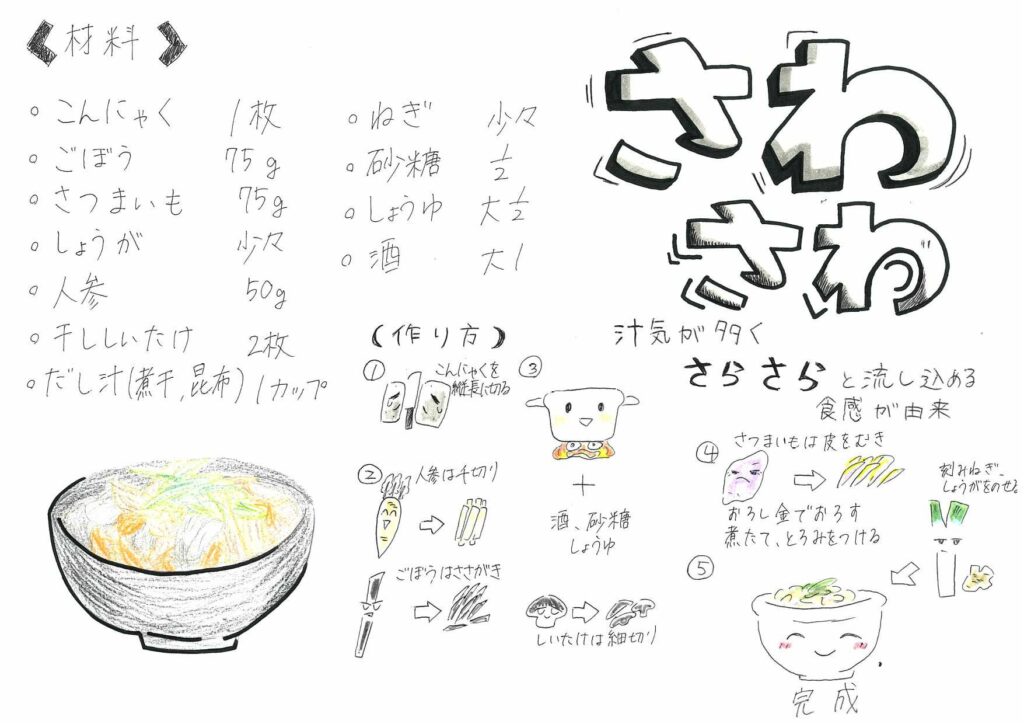 《材料》
○こんにゃく 1枚
○ごぼう 75g
○さつまいも 75g
○しょうが 少々
○人参 50g
○干ししいたけ 2枚
○だし汁(煮干,昆布) 1カップ
○ねぎ 少々
○砂糖 1/2
○しょうゆ 大1/2
○酒 大1
さわ
さわ
汁気が多く
さらさらと流し込める
食感が由来
(作り方)
①こんにゃくを
縦長に切る
②人参は千切り
ごぼうはささがき
しいたけは細切り
③
+
酒、砂糖
しょうゆ
④さつまいもは皮をむき
おろし金でおろす
煮たて、とろみをつける
刻みねぎ、
しょうがをのせる
⑤
完成